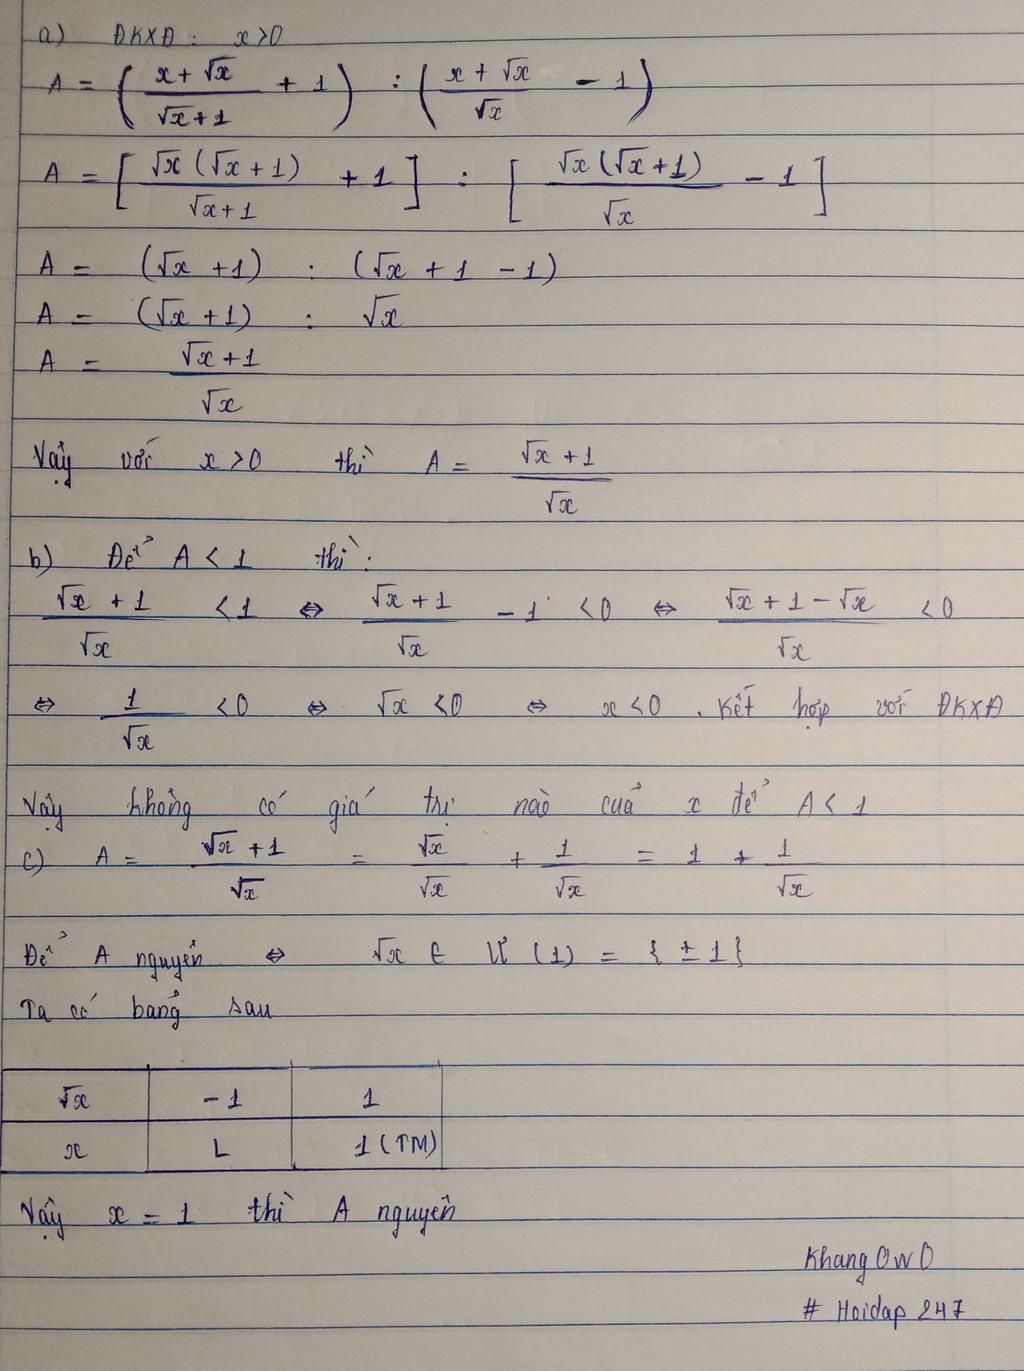 a) ĐKXĐ: x>0
A = ( (x+√x)/(√x+1) + 1 ) : ( (x+√x)/√x - 1 )
A = [ √x(√x+1)/(√x+1) + 1 ] : [ √x(√x+1)/√x - 1 ]
A = (√x+1) : (√x+1-1)
A = (√x+1) : √x
A = (√x+1)/√x
Vậy với x>0 thì A = (√x+1)/√x
b) Để A<1 thì:
(√x+1)/√x <1 ⇔ (√x+1)/√x - 1 <0 ⇔ (√x+1-√x)/√x <0
⇔ 1/√x <0 ⇔ √x <0 ⇔ x<0. Kết hợp với ĐKXĐ
Vậy không có giá trị nào của x để A<1
c) A = (√x+1)/√x = √x/√x + 1/√x = 1 + 1/√x
Để A nguyên ⇔ √x ∈ Ư(1) = {±1}
Ta có bảng sau
√x -1 1
x L 1(TM)
Vậy x = 1 thì A nguyên
Khang OwO
# Hoidap 247